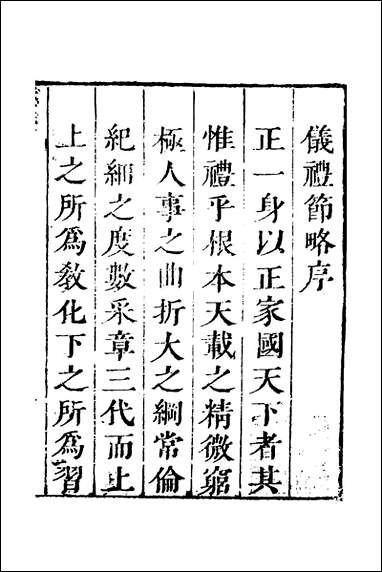 儀禮節略序
正一身以正家國天下者其
惟禮乎根本天載之精微窮
極人事之曲折大之綱常倫
紀細之度數采章三代而上
上之所爲敎化下之所爲習